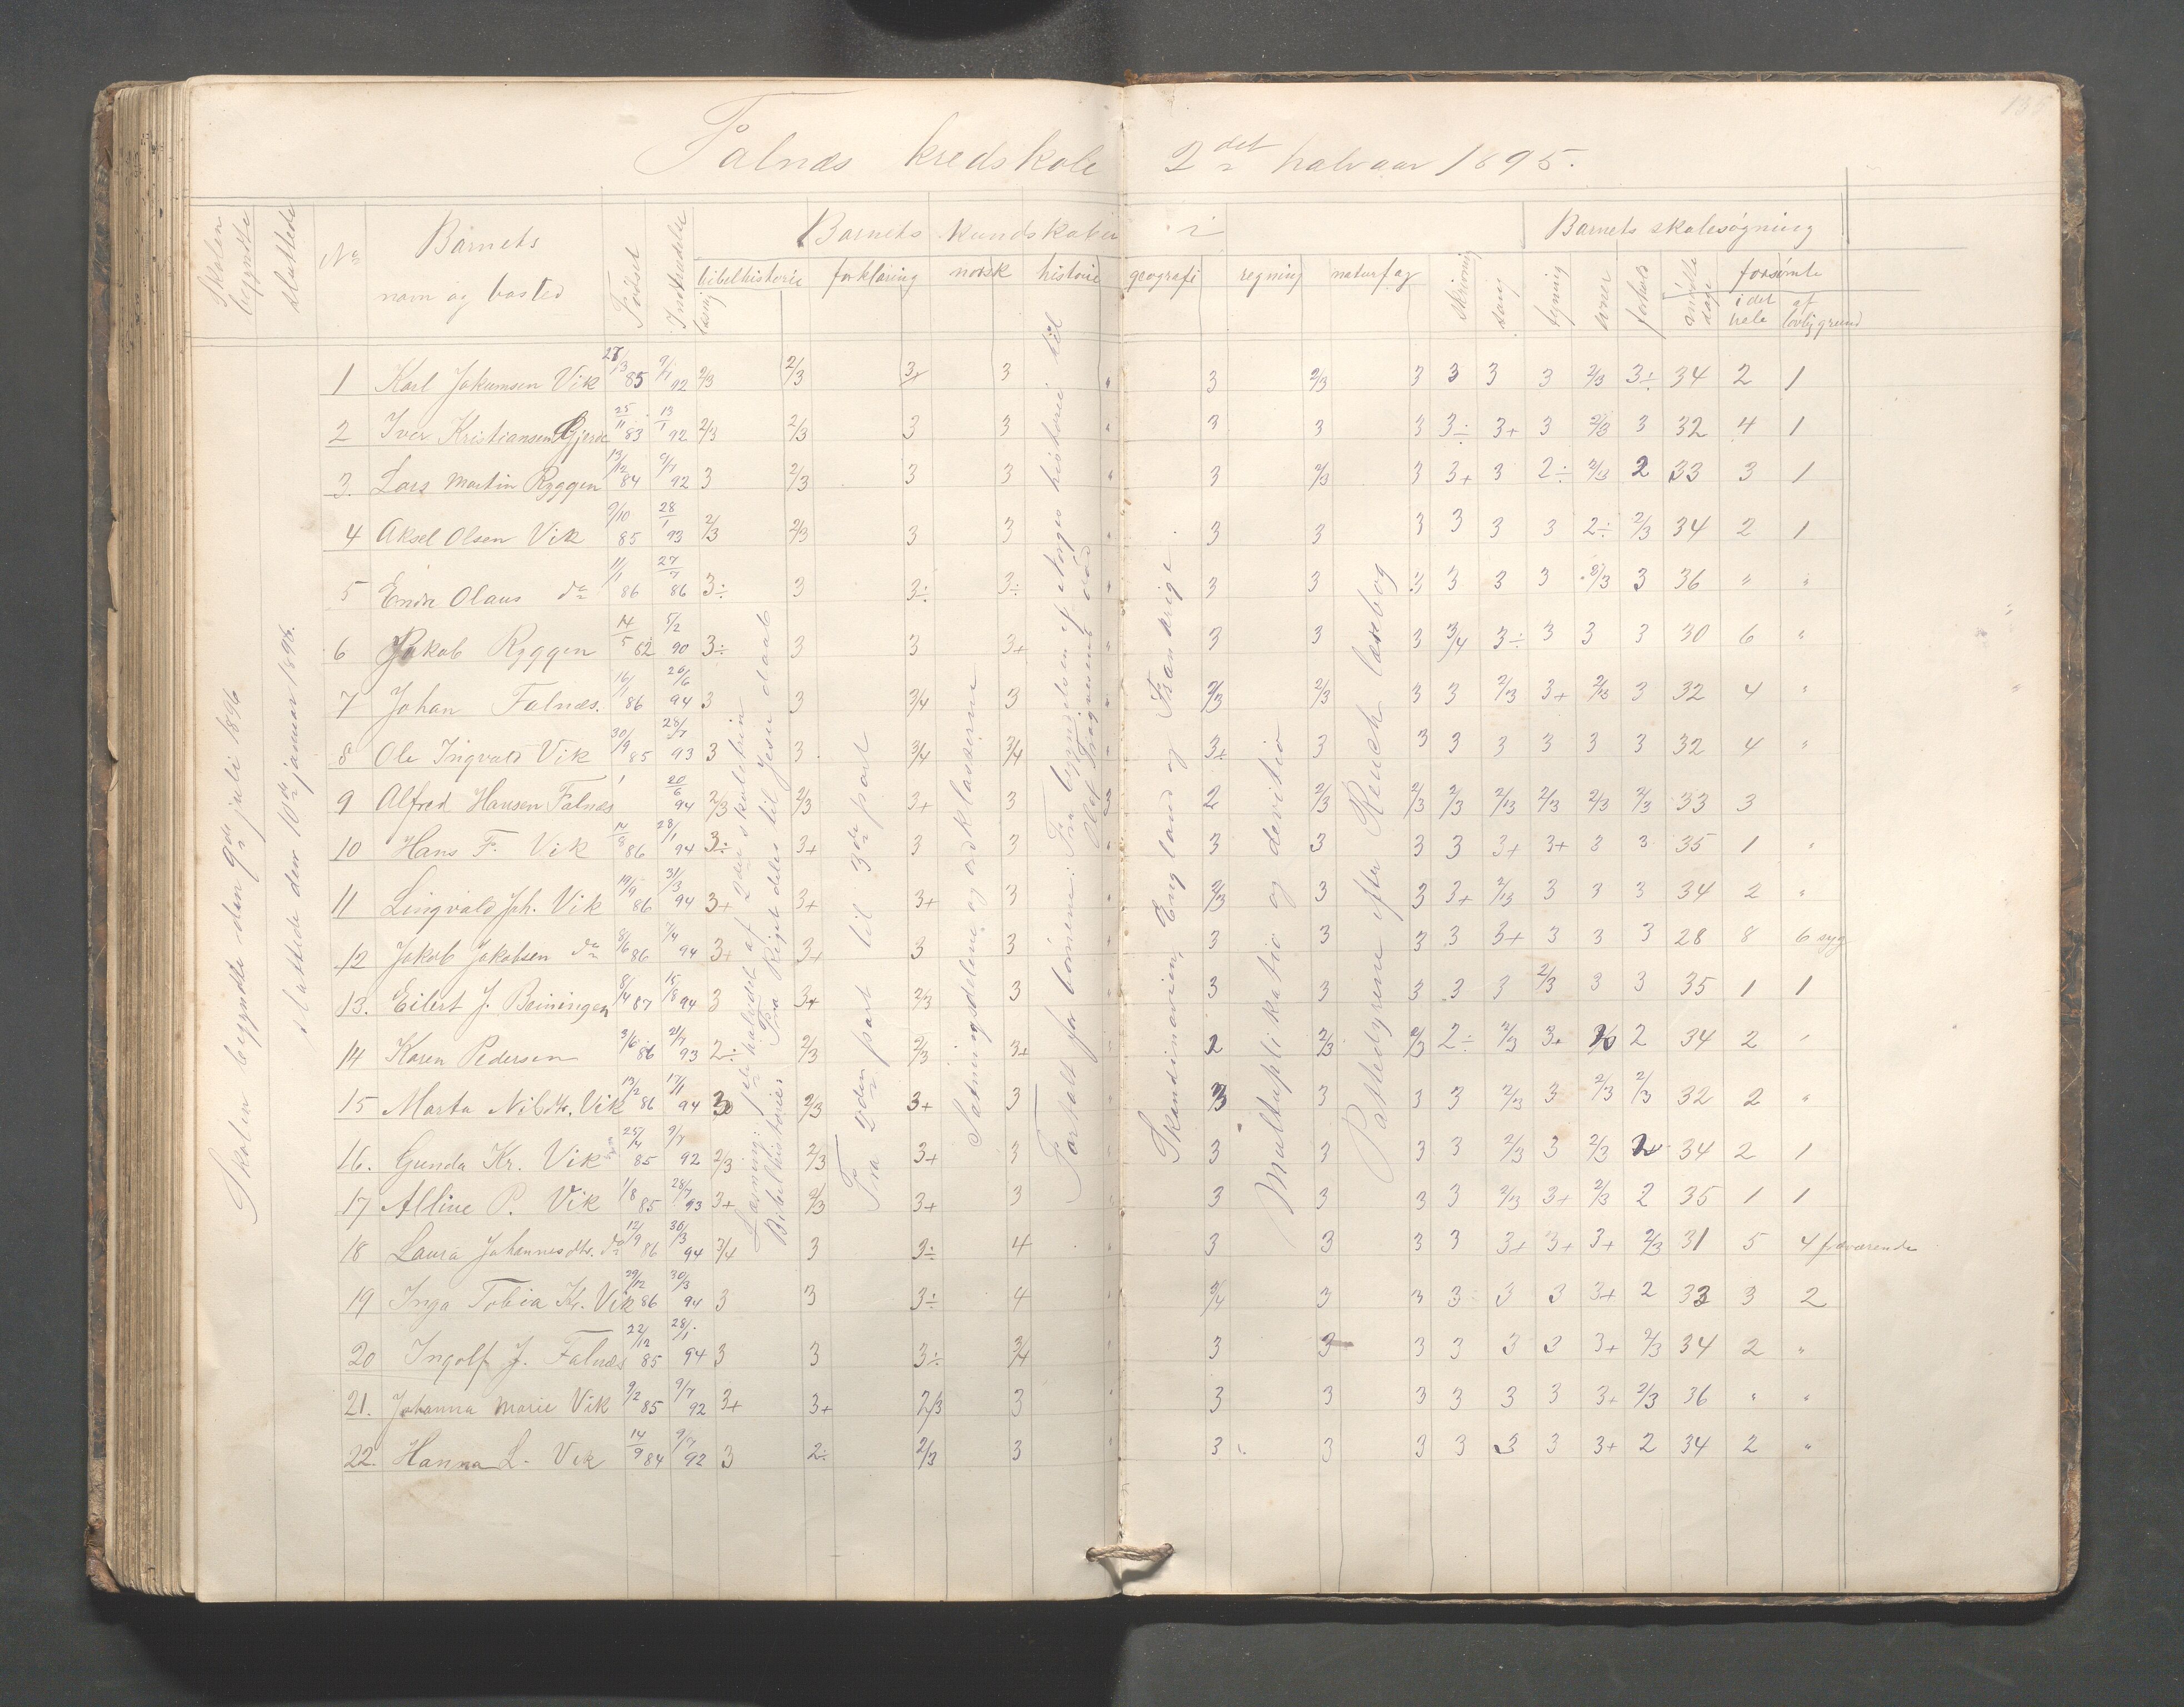 135
Falnæs kredskole 2det halvaar 1895.
Skolen begyndte
sluttede
No
Barnets navn og bosted
Fødset
Indtrædelse
Barnets kundskaber i
læsning
bibelhistorie
forklaring
norsk
historie
geografi
regning
naturfag
skrivning
sang
tegning
evner
forhold
Barnets skolesøgning
mødte dage
forsømte
i det hele
af lovlig grund
Skolen begyndte den 9de juli 1896
sluttede den 10de januar 1896.
Læsning: 1ste halvdel af 2den skoletrin
Bibelhistorie: Fra Riget deles til Jesu daab
Fra 2den part til 3de part
Sætningsdelene og ordklasserne
Fortalt for børnene: Fra begyndelsen af Norges historie til Olaf Trygvesøns død
Skandinavien, England og Frankrige
Multuplikatio og devitio
Pattedyrene efter Reusch læsebog
1 Karl Jakumsen Vik 27/3 85 9/7 92 2/3 2/3 3+ 3 " 3 2/3 3 3 3 3 2/3 3÷ 34 2 1
2 Iver Kristiansen Gjerde 25/11 83 13/1 92 2/3 2/3 3 3 " 3 3 3 3÷ 3+ 3 2/3 3 32 4 1
3. Lars Martin Ryggen 13/12 84 9/7 92 3 2/3 3 3 " 3 2/3 3 3+ 3 2÷ 2/3 2 33 3 1
4 Aksel Olsen Vik 9/10 85 28/1 93 2/3 2/3 3 3 " 3 3 3 3 3 3 2÷ 2/3 34 2 1
5 Endre Olaus do 11/1 86 27/7 86 3÷ 3 3÷ 3÷ " 3 3 3 3 3 3 2/3 3 36 " "
6 Jakob Ryggen 14/5 82 5/2 90 3÷ 3 3 3+ " 3 3 3 3/4 3÷ 3 3 3 30 6 "
7 Johan Falnæs. 16/1 86 26/6 94 3 3 3/4 3 " 2/3 2/3 3 3 2/3 3+ 2/3 3 32 4 "
8 Ole Ingvald Vik 30/9 85 28/7 93 3 3 3/4 3/4 " 3+ 3 3 3 3 3 3 3 32 4 "
9 Alfred Hansen Falnæs 20/6 94 2/3 2/3 3+ 3 3 2 2/3 2/3 2/3 2/3 2/3 2/3 2/3 33 3
10 Hans F. Vik 14/3 86 28/1 94 3÷ 3+ 3 3 " 3 3 3 3 3+ 3+ 3 3 35 1 "
11 Lingvald Joh. Vik 19/9 86 31/3 94 3+ 3+ 3+ 3 " 2/3 3 3 3+ 2/3 3 3 3 34 2 "
12 Jakob Jakobsen do 8/6 86 3/4 94 3+ 3+ 3 3 " 3 3 3 3 3+ 3 3 3 28 8 6 syg
13. Eilert J. Beiningen 8/4 87 15/8 94 3 3+ 2/3 3 3 3 3 3 3 2/3 3 3 35 1 1
14 Karen Pedersen 3/6 86 21/7 93 2÷ 2/3 2/3 3+ 2 2/3 2/3 2÷ 2/3 3+ 2 34 2 "
15 Marta Nilsdtr. Vik 13/2 86 17/1 94 3 2/3 3+ 3 2/3 3 3 3 2/3 3 2/3 2/3 32 2 "
16. Gunda Kr. Vik 25/4 85 9/7 92 2/3 2/3 3+ 3 3 3 3 3 2/3 3 2/3 2+ 34 2 1
17 Alline P. Vik 1/8 85 28/7 93 3+ 2/3 3+ 3 3 3 3 3 2/3 3+ 2/3 2 35 1 1
18 Laura Johannesdtr. do 12/9 86 30/3 94 3/4 3 3÷ 4 " 3 3 3 3 3+ 3+ 3+ 2/3 31 5 4 fraværende
19 Inga Tobia Kr. Vik 29/12 86 30/3 94 3 3 3÷ 4 " 3/4 3 3 3 3 3 3+ 2 33 3 2
20 Ingolf J. Falnæs 22/12 85 28/1 94 3 3 3÷ 3/4 " 3 3 3 3 3 3 3+ 2/3 34 2 "
21. Johanna Marie Vik 9/2 85 9/7 92 3+ 3+ 2/3 3 " 3 3 3 3 3 3 3+ 2/3 36 " "
22. Hanna L. Vik 14/9 84 9/7 92 3 2÷ 2/3 3 " 3 3 3 3 3 3 3+ 2 34 2 "